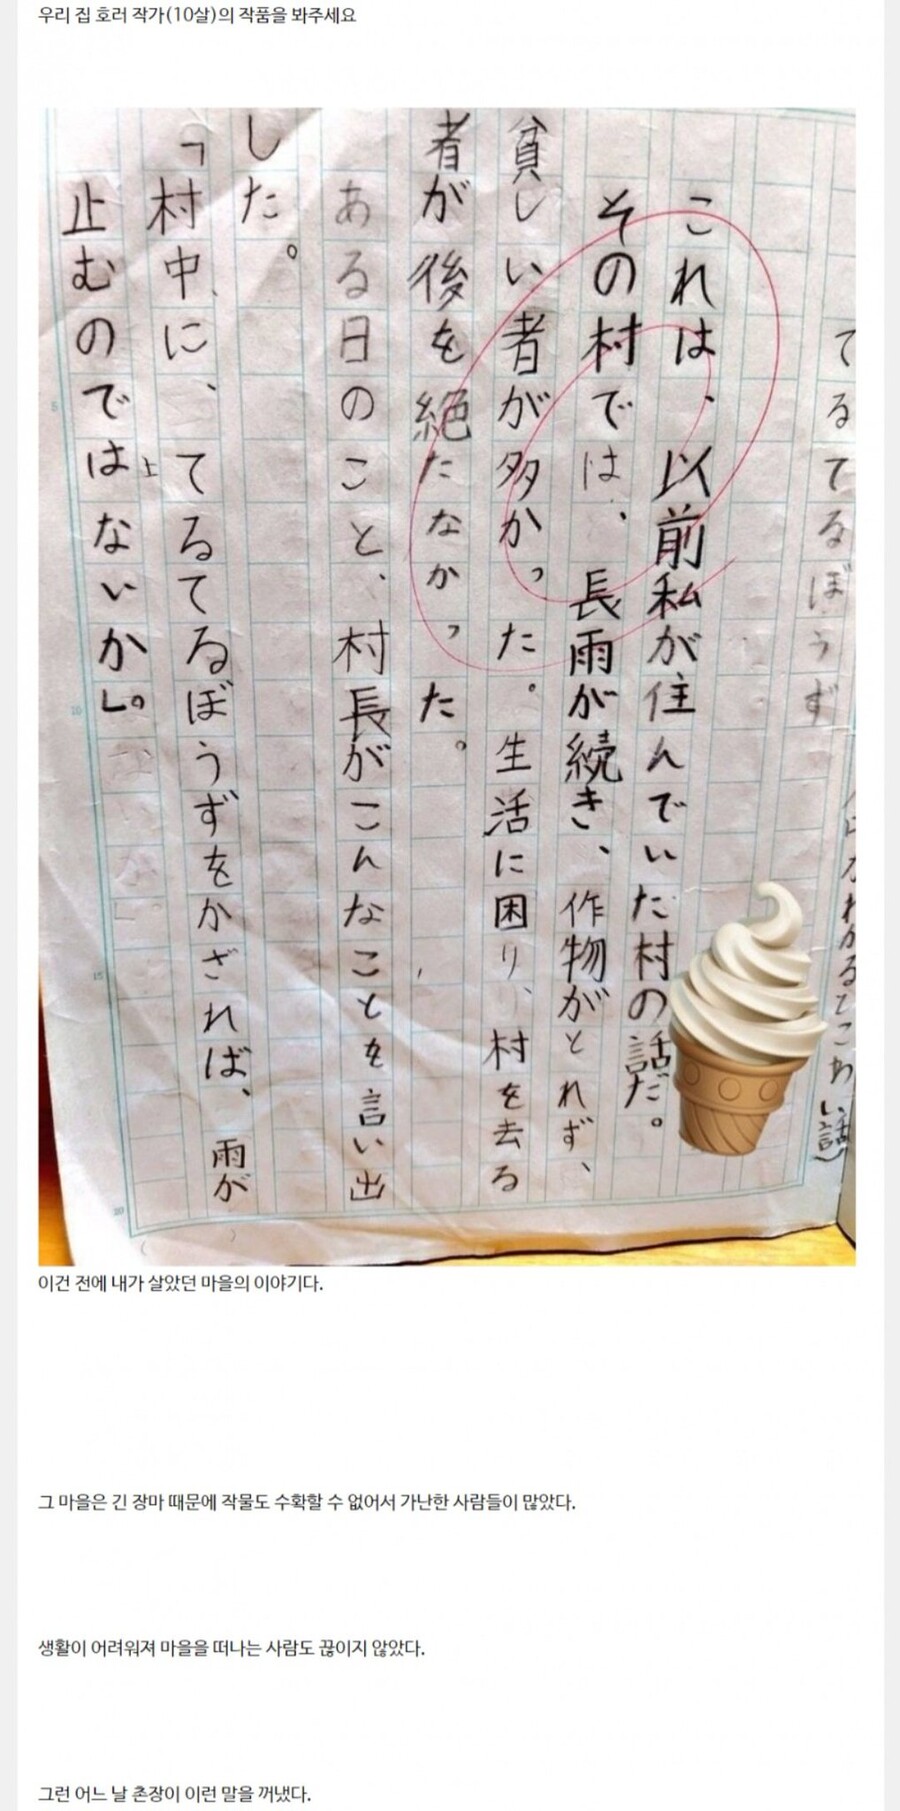 우리 집 호러 작가(10살)의 작품을 봐주세요
てるてるぼうず
これは、以前私が住んでいた村の話だ。
その村では、長雨が続き、作物がとれず、
貧しい者が多かった。生活に困り、村を去る
者が後を絶たなかった。
ある日のこと、村長がこんなことを言い出
した。
「村中に、てるてるぼうずをかざれば、雨が
止むのではないか」。
5
10
15
20
이건 전에 내가 살았던 마을의 이야기다.
그 마을은 긴 장마 때문에 작물도 수확할 수 없어서 가난한 사람들이 많았다.
생활이 어려워져 마을을 떠나는 사람도 끊이지 않았다.
그런 어느 날 촌장이 이런 말을 꺼냈다.